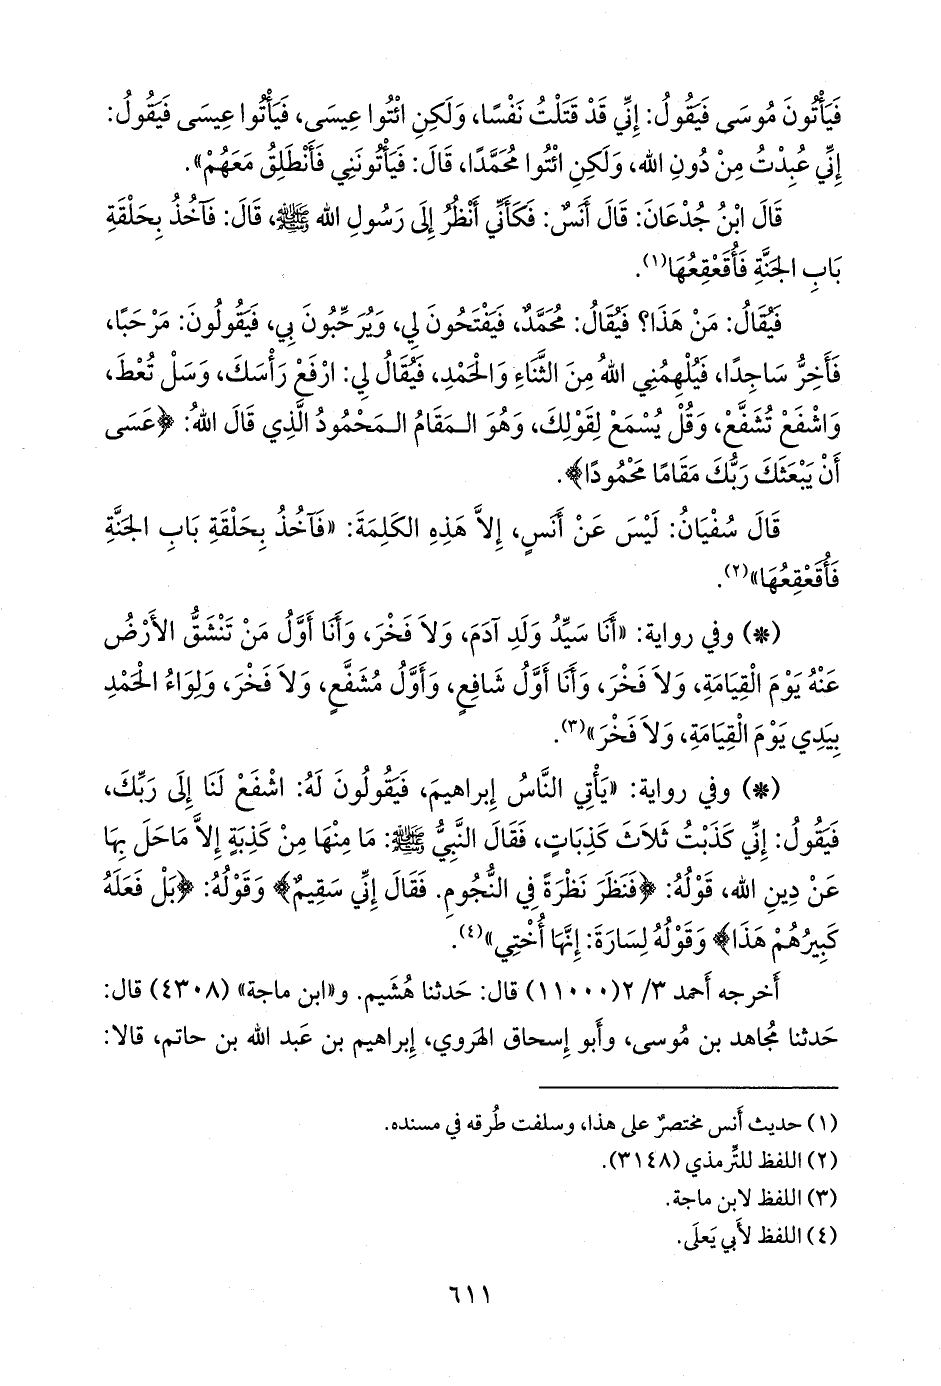 فَيَأْتُونَ مُوسَى فَيَقُولُ: إِنِّي قَدْ قَتَلْتُ نَفْسًا، وَلَكِنِ ائْتُوا عِيسَى، فَيَأْتُوا عِيسَى فَيَقُولُ:
إِنِّي عُبِدْتُ مِنْ دُونِ الله، وَلَكِنِ ائْتُوا مُحَمَّدًا، قَالَ: فَيَأْتُونَنِي فَأَنْطَلِقُ مَعَهُمْ».
قَالَ ابْنُ جُدْعَانَ: قَالَ أَنَسٌ: فَكَأَنِّي أَنْظُرُ إِلَى رَسُولِ الله ﷺ، قَالَ: فَآخُذُ بِحَلْقَةِ
بَابِ الجَنَّةِ فَأُقَعْقِعُهَا(١).
فَيُقَالُ: مَنْ هَذَا؟ فَيُقَالُ: مُحَمَّدٌ، فَيَفْتَحُونَ لِي، وَيُرَحِّبُونَ بِي، فَيَقُولُونَ: مَرْحَبًا،
فَأَخِرُّ سَاجِدًا، فَيُلْهِمُنِي اللهُ مِنَ الثَّنَاءِ وَالْحَمْدِ، فَيُقَالُ لِي: ارْفَعْ رَأْسَكَ، وَسَلْ تُعْطَ،
وَاشْفَعْ تُشَفَّعْ، وَقُلْ يُسْمَعْ لِقَوْلِكَ، وَهُوَ الـمَقَامُ الـمَحْمُودُ الَّذِي قَالَ اللهُ: ﴿عَسَى
أَنْ يَبْعَثَكَ رَبُّكَ مَقَامًا مَحْمُودًا﴾.
قَالَ سُفْيَانُ: لَيْسَ عَنْ أَنَسٍ، إِلاَّ هَذِهِ الكَلِمَةَ: «فَآخُذُ بِحَلْقَةِ بَابِ الجَنَّةِ
فَأُقَعْقِعُهَا»(٢).
(*) وفي رواية: «أَنَا سَيِّدُ وَلَدِ آدَمَ، وَلاَ فَخْرَ، وَأَنَا أَوَّلُ مَنْ تَنْشَقُّ الأَرْضُ
عَنْهُ يَوْمَ الْقِيَامَةِ، وَلاَ فَخْرَ، وَأَنَا أَوَّلُ شَافِعٍ، وَأَوَّلُ مُشَفَّعٍ، وَلاَ فَخْرَ، وَلِوَاءُ الْحَمْدِ
بِيَدِي يَوْمَ الْقِيَامَةِ، وَلاَ فَخْرَ»(٣).
(*) وفي رواية: «يَأْتِي النَّاسُ إِبراهِيمَ، فَيَقُولُونَ لَهُ: اشْفَعْ لَنَا إِلَى رَبِّكَ،
فَيَقُولُ: إِنِّي كَذَبْتُ ثَلاَثَ كَذِبَاتٍ، فَقَالَ النَّبِيُّ ﷺ: مَا مِنْهَا مِنْ كَذِبَةٍ إِلاَّ مَاحَلَ بِهَا
عَنْ دِينِ الله، قَوْلُهُ: ﴿فَنَظَرَ نَظْرَةً فِي النُّجُومِ. فَقَالَ إِنِّي سَقِيمٌ﴾ وَقَوْلُهُ: ﴿بَلْ فَعَلَهُ
كَبِيرُهُمْ هَذَا﴾ وَقَوْلُهُ لِسَارَةَ: إِنَّهَا أُخْتِي»(٤).
أَخرجه أَحمد ٣/ ٢(١١٠٠٠) قال: حَدثنا هُشَيم. و«ابن ماجة» (٤٣٠٨) قال:
حَدثنا مُجاهد بن مُوسى، وأَبو إِسحاق الهَروي، إِبراهيم بن عَبد الله بن حاتم، قالا:
(١) حديث أَنس مختصرٌ على هذا، وسلفت طُرقه في مسنده.
(٢) اللفظ للتِّرمذي (٣١٤٨).
(٣) اللفظ لابن ماجة.
(٤) اللفظ لأَبي يَعلَى.
٦١١